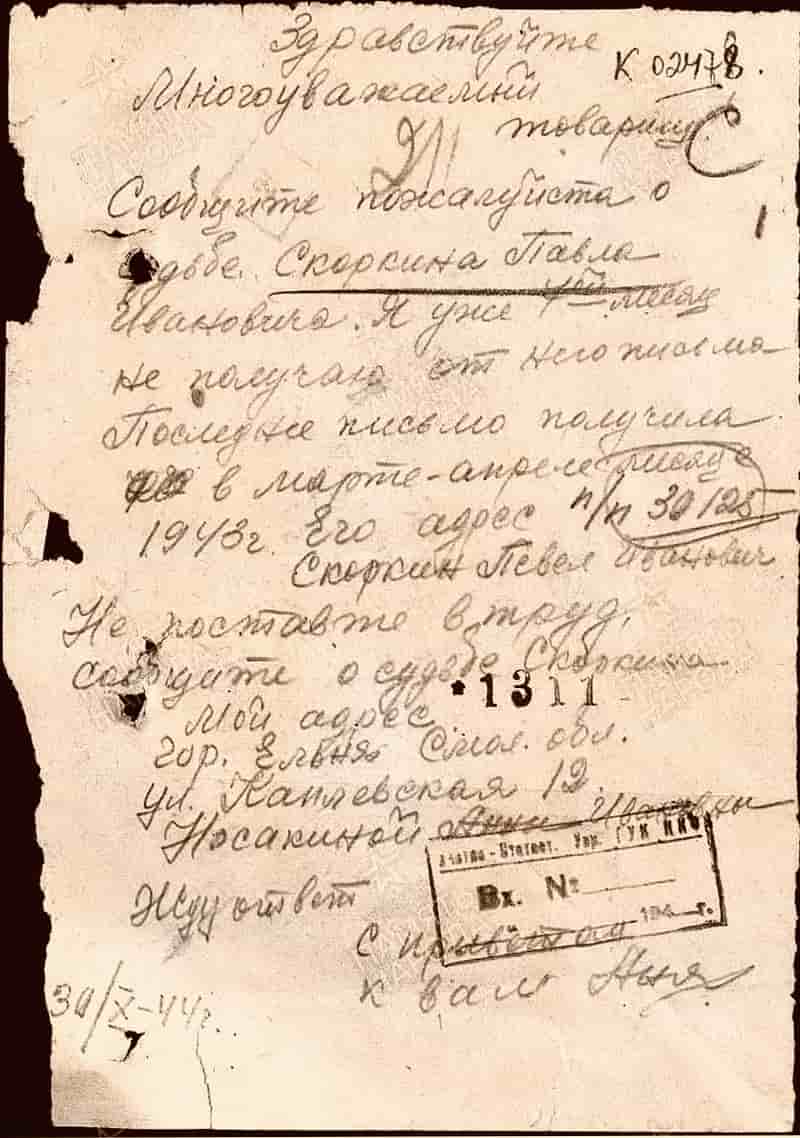 Здравствуйте
К 02478.
Многоуважаемый
товарищ.
Сообщите пожалуйста о
судьбе. Скоркина Павла
Ивановича. Я уже месяц
не получаю от него письма
Последнее письмо получила
в марте-апреле месяце
1943г. Его адрес п/п 39125
Скоркин Певел Иванович
Не поставте в труд,
сообщите о судьбе Скоркина
*1311
Мой адрес
гор. Ельня Смол. обл.
ул. Каплевская 12.
Носакиной Анны Ивановны
Упр. ГУК НКО
Вх. №
194 г.
Жду ответ
с приветом
к вам Аня
30/X-44г.